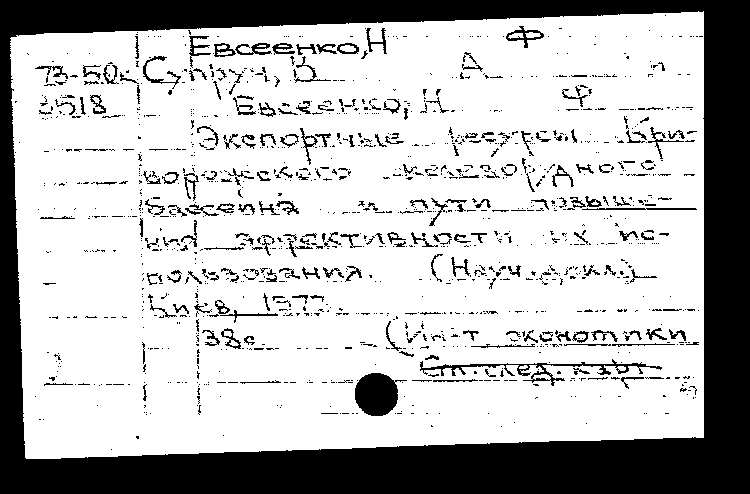 Евсеенко, Н Ф
73-50к Супрун, В А и
3518 Евсеенко, Н Ф
Экспортные ресурсы Кри-
ворожского железорудного
бассейна и пути повыше-
ния эффективности их ис-
пользования. (Науч. докл.)
Киев, 1973.
38с (Ин-т экономики
См. след. карт